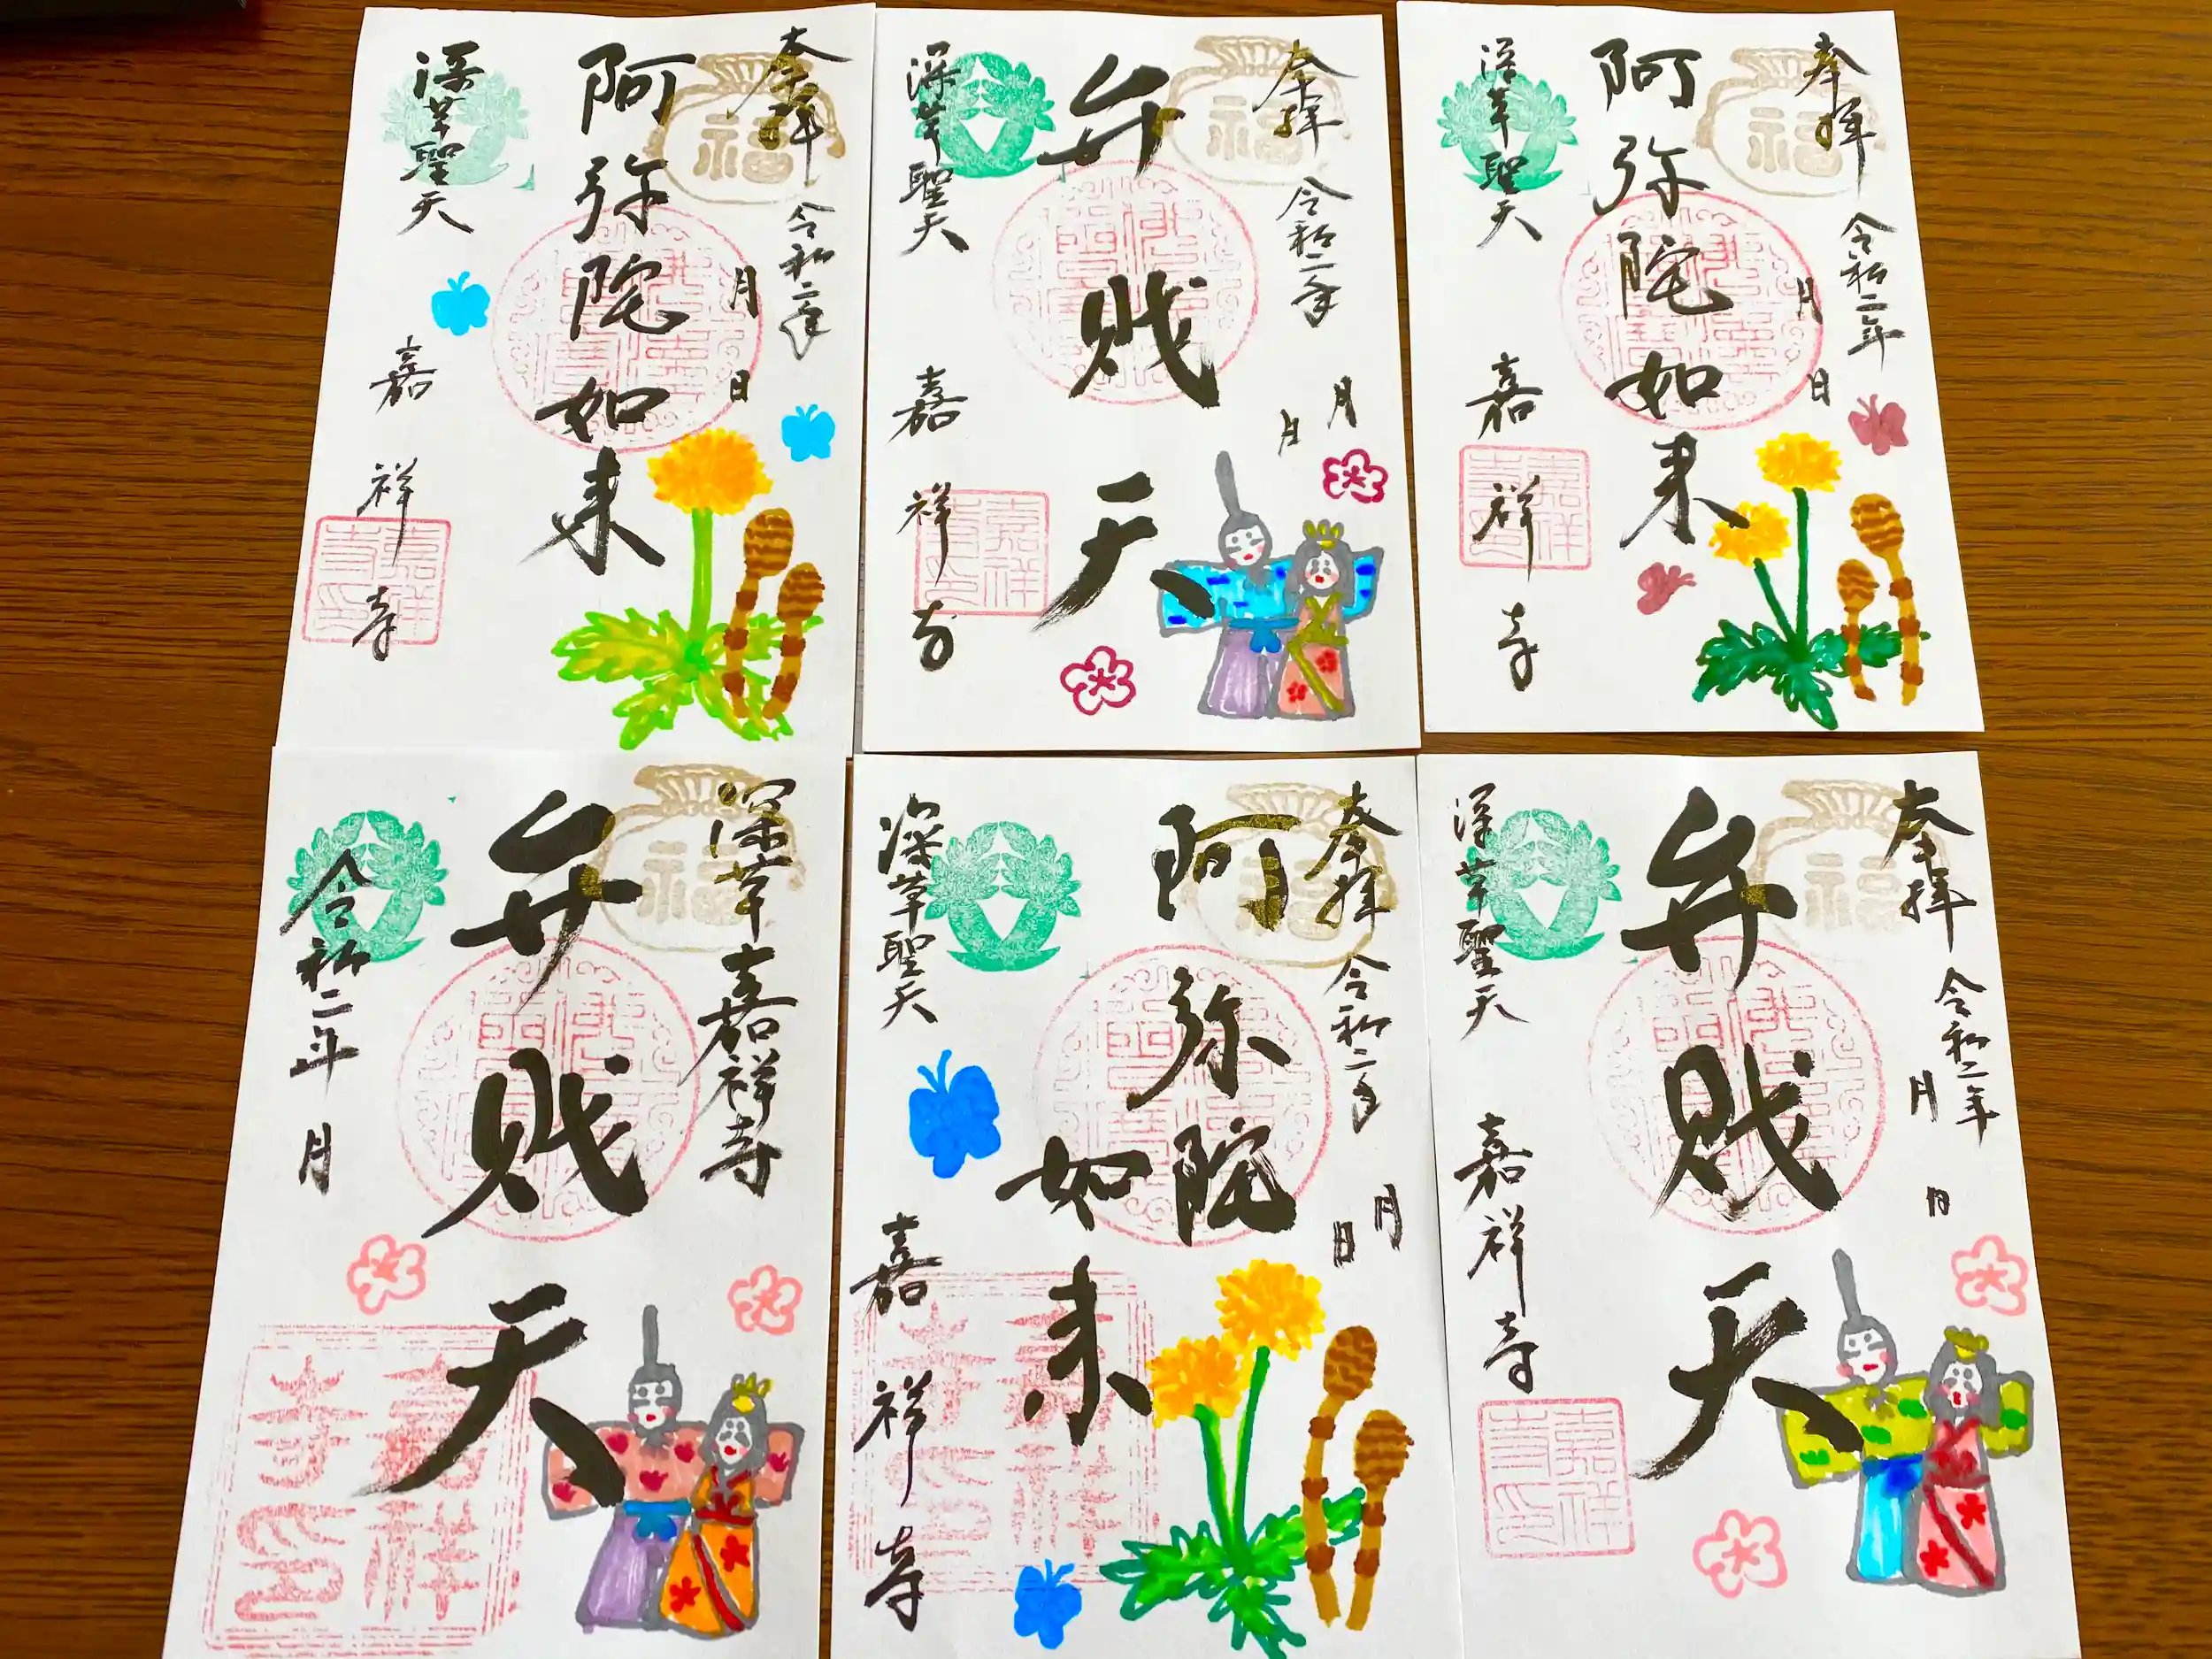 奉拝 令和二年
月 日
福
阿弥陀如来
深草聖天 嘉祥寺
嘉祥寺印
奉拝 令和二年
月 日
福
弁財天
深草聖天 嘉祥寺
嘉祥寺印
奉拝 令和二年
月 日
福
阿弥陀如来
深草聖天 嘉祥寺
嘉祥寺印
深草嘉祥寺
福
弁財天
令和二年 月
嘉祥寺印
奉拝 令和二年
月 日
福
阿弥陀如来
深草聖天 嘉祥寺
嘉祥寺印
奉拝 令和二年
月 日
福
弁財天
深草聖天 嘉祥寺
嘉祥寺印